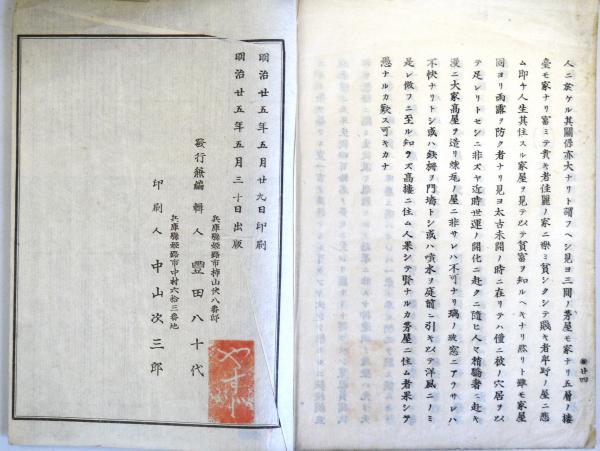 人ニ於ケル其關係亦大ナリト謂フヘシ見ヨ三間ノ茅屋モ家ナリ五層ノ樓
臺モ家ナリ富ミテ貴キ者佳麗ノ家ニ樂ミ貧シクシテ賤キ者卑陋ノ屋ニ悲
ム即チ人生其住スル家屋ヲ見テ以テ貧富ヲ知ルヘキナリ然リト雖モ家屋
固ヨリ雨露ヲ防ク者ナリ見ヨ太古未開ノ時ニ在リテハ僅ニ彼ノ穴居ヲ以
テ足レリトセシニ非スヤ近時世運ノ開化ニ赴クニ隨ヒ人々稍驕奢ニ赴キ
漫ニ大家高屋ヲ造リ煉瓦ノ屋ニ非サレハ不可ナリ璃ノ玻窓ニアラサレハ
不快ナリトシ或ハ鉄柵ヲ門墻トシ或ハ噴水ヲ庭前ニ引キ以テ洋風ニノミ
是レ倣フニ至ル知ラス高樓ニ住ム人果シテ賢ナルカ茅屋ニ住ム者果シテ
愚ナルカ歎ス可キカナ
廿四
明治廿五年五月廿九日印刷
明治廿五年五月三十日出版
兵庫縣姫路市
八番邸
發行兼編輯人 豐田八十代
兵庫縣姫路市中村六拾三番地
印刷人 中山次三郎